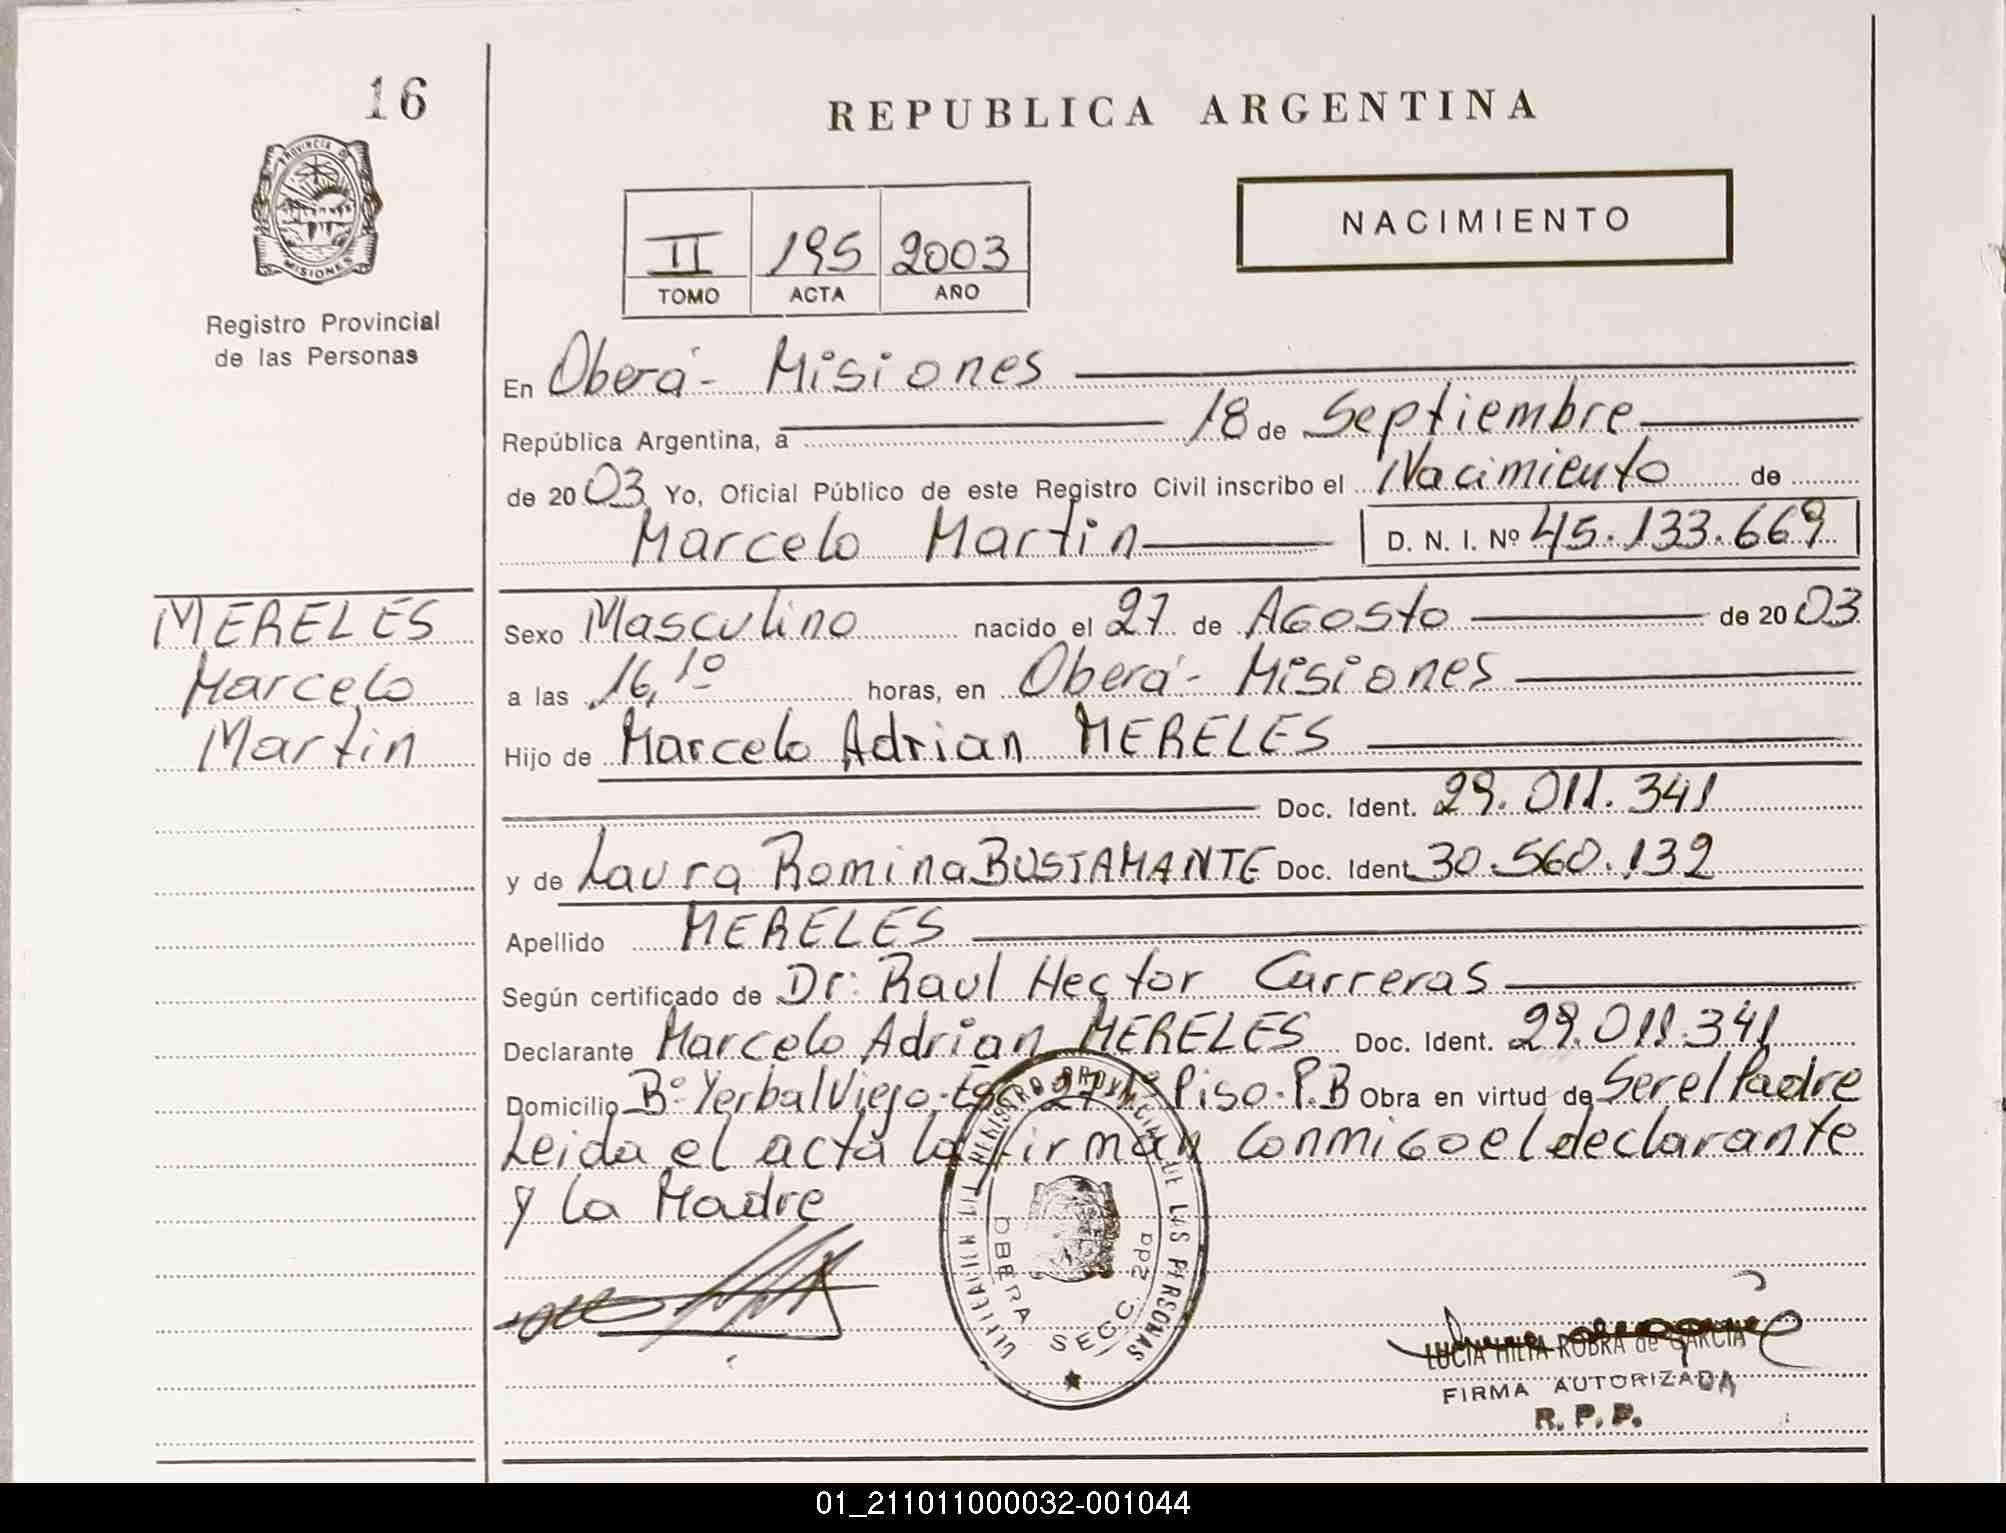 16
REPUBLICA ARGENTINA
PROVINCIA DE
MISIONES
Registro Provincial
de las Personas
II 195 2003
TOMO ACTA AÑO
NACIMIENTO
En Oberá - Misiones
República Argentina, a 18 de Septiembre
de 2003 Yo, Oficial Público de este Registro Civil inscribo el Nacimiento de
Marcelo Martin D. N. I. Nº 45.133.669
MERELES
Marcelo
Martin
Sexo Masculino nacido el 27 de Agosto de 2003
a las 16,10 horas, en Oberá - Misiones
Hijo de Marcelo Adrian MERELES
Doc. Ident. 29.011.341
y de Laura Romina BUSTAMANTE Doc. Ident. 30.560.132
Apellido MERELES
Según certificado de Dr: Raul Hector Carreras
Declarante Marcelo Adrian MERELES Doc. Ident. 29.011.341
Domicilio Bº Yerbal Viejo - 27 1º Piso - P.B Obra en virtud de Ser el Padre
Leida el acta la firman conmigo el declarante
y la Madre
REGISTRO PROVINCIAL DE LAS PERSONAS
OBERA SECC. 2da
LUCIA HILDA ROBRA de GARCIA
FIRMA AUTORIZADA
R. P. P.
01_211011000032-001044